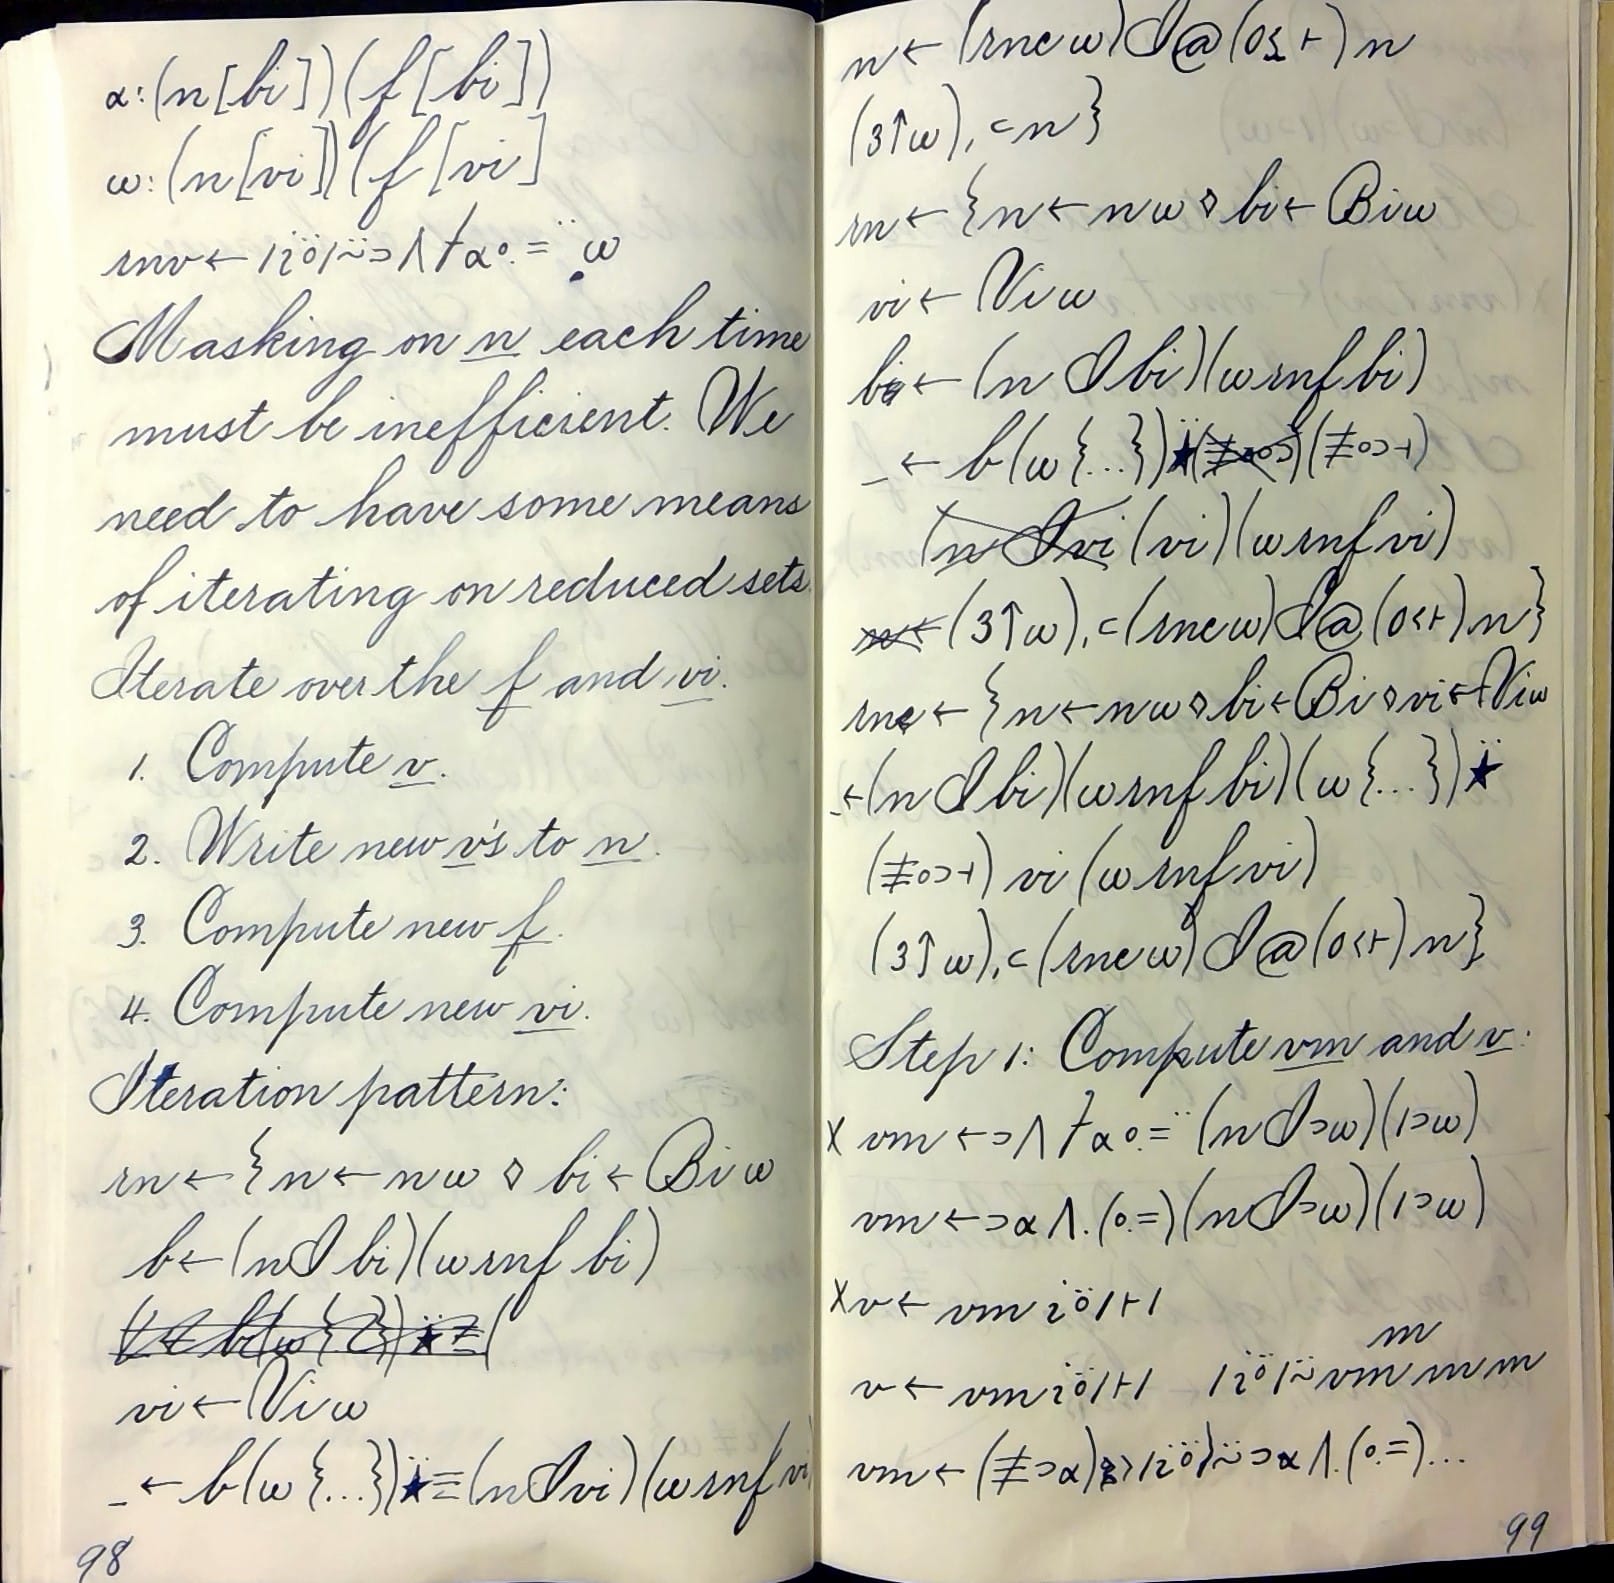 α:(n[bi])(f[bi])
ω:(n[vi])(f[vi]
rnv←⍳⍤/⍨⊃∧⌿α∘.=¨ω
Masking on n each time
must be inefficient. We
need to have some means
of iterating on reduced sets.
Iterate over the f and vi.
1. Compute v.
2. Write new v's to n.
3. Compute new f.
4. Compute new vi.
Iteration pattern:
rn←{n←nω⋄bi←Biω
b←(n⌷bi)(ωrnf bi)
vi←Viω
_←b(ω{...})⍣≡(n⌷vi)(ωrnf vi
98
n←(rncω)⌷@(0≤⊢)n
(3↑ω),⊂n}
rn←{n←nω⋄bi←Biω
vi←Viω
b←(n⌷bi)(ωrnf bi)
_←b(ω{...})⍣(≢∘⊃⊣)
(vi)(ωrnf vi)
(3↑ω),⊂(rncω)⌷@(0≤⊢)n}
rn←{n←nω⋄bi←Bi⋄vi←Viω
_←(n⌷bi)(ωrnf bi)(ω{...})⍣
(≢∘⊃⊣)vi(ωrnf vi)
(3↑ω),⊂(rncω)⌷@(0≤⊢)n}
Step 1: Compute vm and v:
X vm←⊃∧⌿α∘.=¨(n⌷⊃ω)(1⊃ω)
vm←⊃α∧.(∘.=)(n⌷⊃ω)(1⊃ω)
X v←vm⍳⍤1⊢1
m
v←vm⍳⍤1⊢1 ⍳⍤/⍨vm m m
vm←(≢⊃α)⍳⍤/⍨⊃α∧.(∘.=)...
99